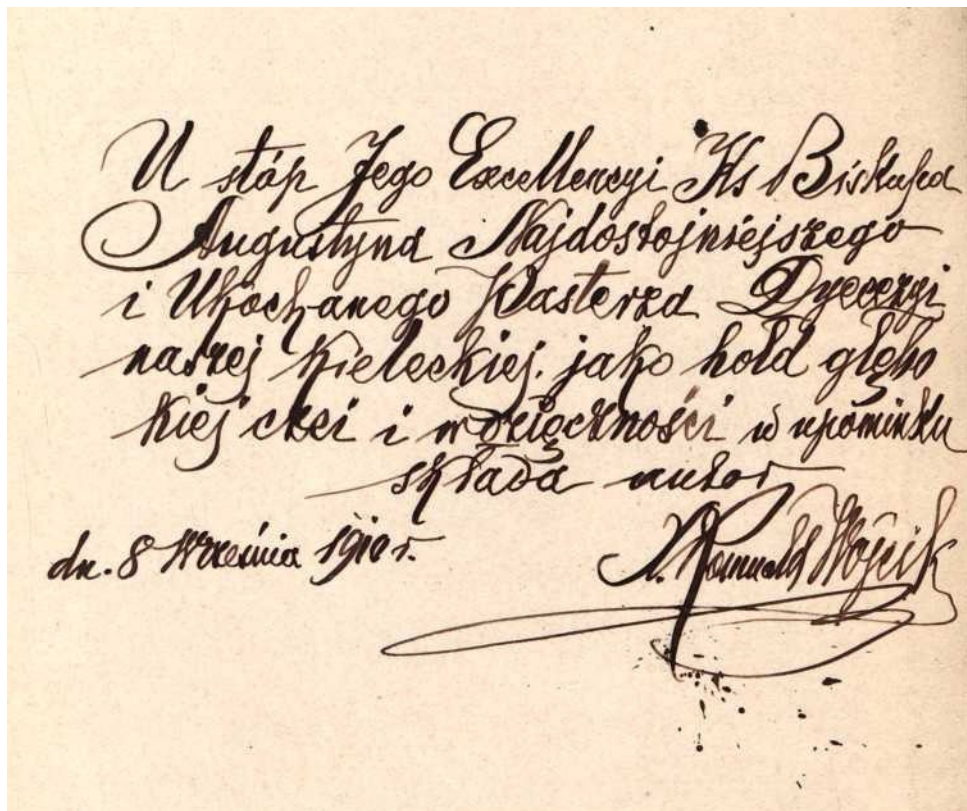 U stóp Jego Excellencyi Ks Biskupa
Augustyna Najdostojniejszego
i Ukochanego Pasterza Dyecezyi
naszej Kieleckiej. jako hołd głębo
kiej czci i wdzięczności w upominku
składa autor
dn. 8 Września 1910 r.
X. Romuald Wójcik